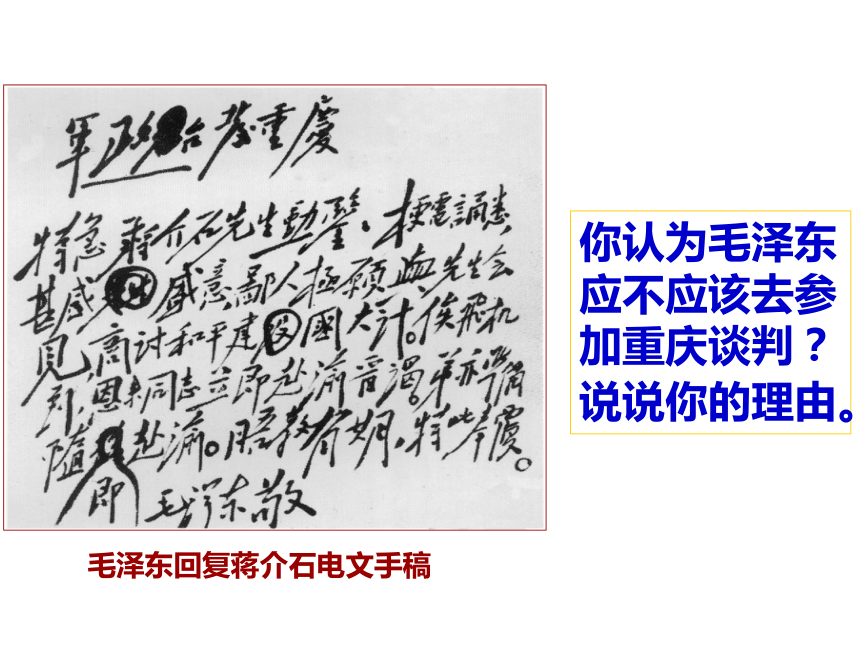 重慶
特急 蒋介石先生勛鑒、梗電誦悉、
甚感盛意鄙人極願與先生会
見,商讨和平建國大计。俟飛机
到,恩来同志立即赴渝晋谒。弟亦準備
随即赴渝。晤教有期,特此奉覆。
毛泽东敬
毛泽东回复蒋介石电文手稿
你认为毛泽东
应不应该去参
加重庆谈判？
说说你的理由。